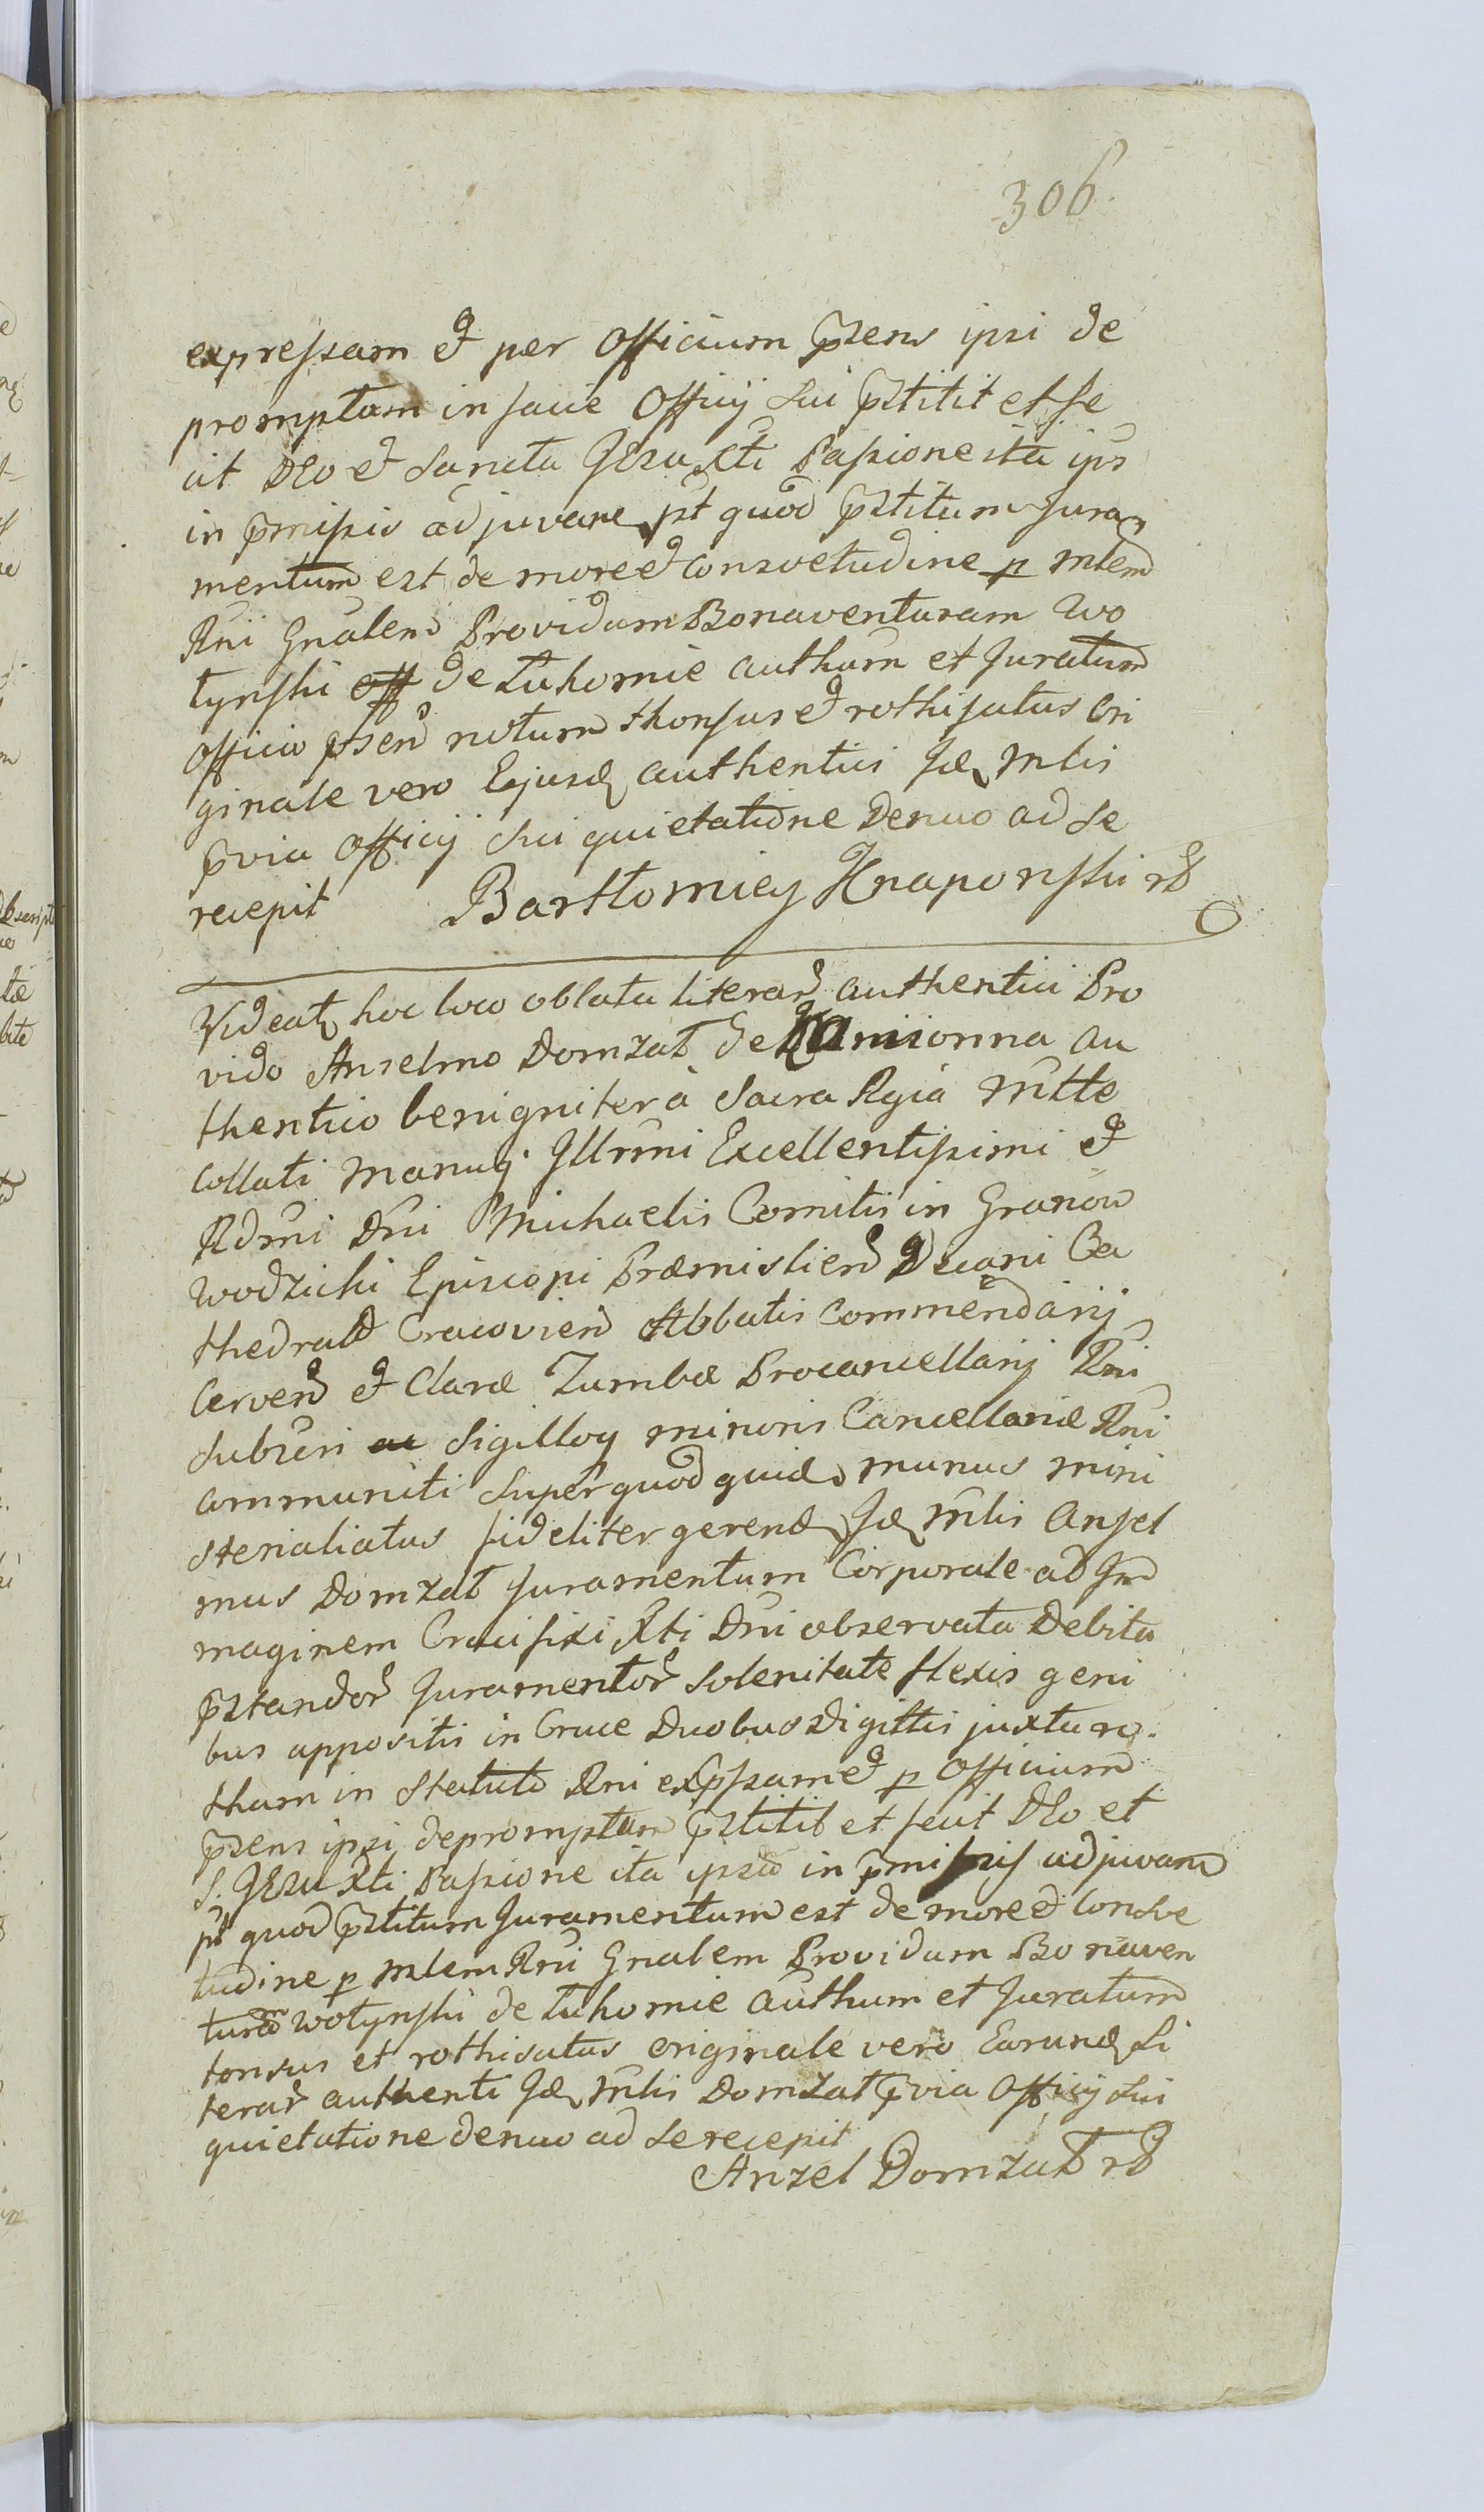 306.
expressam et per Officium p̃sens ipsi de
promptam in facie Officij sui p̃stitit et fe
cit Deo et Sancta JEsu Xti Passione ita ips̃
in p̃missis adjuvare, p̃t quod p̃stitum Jura
mentum est de more et consvetudine p mlem̃
Rñi Gñalem Providum Bonaventuram Wo
łynski off de Łukomie authum et Juratum
officio p̃sen notum thonsus et rothisatus Ori
ginale vero Ejusd authentici Jd Mlis
p̃via Officij sui quietatione denuo ad se
recepit Bartłomiey Knaponski rb
Videat hoc loco oblata literar authentici Pro
vido Anselmo Domzał de Kamionna au
thentico benigniter à Sacra Rgia Mtte
collati manuq Illrmi Excellentissimi et
Rdmi Dni Michaelis Comitis in Granow
Wodzicki Episcopi Præmislien Decani Ca
thedral Cracovien Abbatis Commendarij
Cerven et Claræ Tumbæ Procancellarij Rni
Subscri ac Sigilloq minoris Cancellariæ Rni
communiti Super quod quid munus mini
sterialiatus fideliter gerend Jd Mlis Ansel
mus Domzał Juramentum Corporale ad Im̃
maginem Crucifixi Xti Dni observata debita
p̃standor Juramentor solenitate flexis geni
bus appositis in Cruce duobus digittis juxta ro.
tham in Statuto Rni exp̃ssam et p Officium
p̃sens ipsi depromptam p̃stitit et fecit DEo et
S. JEsu Xti Passione ita ipsū in p̃missis adjuvare
p̃t quod p̃stitum Juramentum est de more et consve
tudine p mlem Rni Gnalem Providum Bonaven
turam Wołynski de Łukomie authum et Juratum
tonsus et rothisatus originale vero Earund Li
terar authenti Jd Mlis Domzał p̃via Officij sui
quietatione denuo ad se recepit
Anzel Domzał rb